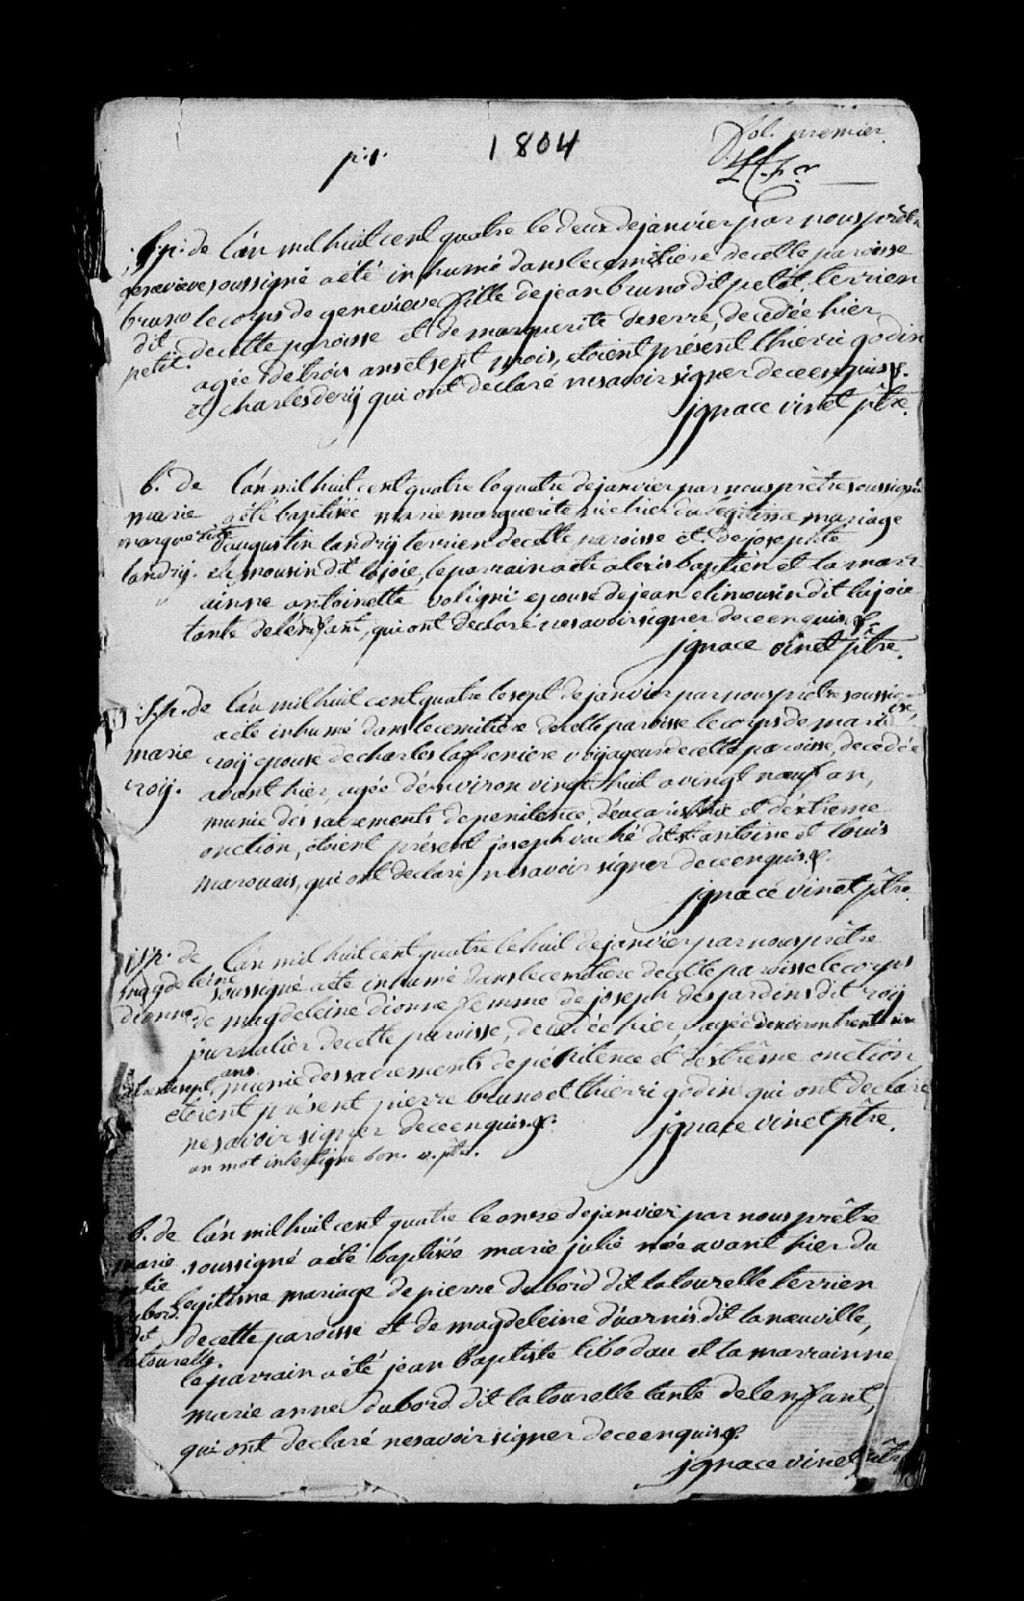 fol. premier.
p: 1.
1804
S.p. de
genevieve
bruno
dit
petit.
l'an mil huit cent quatre le deux de janvier par nous prêtre
soussigné a été inhumé dans le cemitiere de cette paroisse
le corps de genevieve fille de jean bruno dit petit, terrien
de cette paroisse et de marguerite deserre, decedée hier
agée de trois ans et sept mois, etoient présent thierie godin
et charles derij qui ont declaré ne savoir signer de ce enquis &.
jgnace vinet ptre.
b. de
marie
marguerite
landrij.
l'an mil huit cent quatre le quatre de janvier par nous prêtre soussigné
a été baptisée marie marguerite née hier du légitime mariage
d'augustin landrij terrien de cette paroisse et de josephte
elimousin dit lajoie, le parrain a été alexis baptien et la marr
ainne antoinette voligni epouse de jean elimousin dit lajoie
tante de l'enfant, qui ont declaré ne savoir signer de ce enquis &.
jgnace vinet ptre.
S.p. de
marie
roij.
l'an mil huit cent quatre le sept de janvier par nous prêtre soussigné
a été inhumé dans le cemitiere de cette paroisse le corps de marie
roij epouse de charles lafreniere voijageur de cette paroisse, decedée
avant hier, agée d'environ vingt huit a vingt neuf an,
munie des sacrements de penitence, d'eucaristie et d'extreme
onction, etoient présent joseph vaché dit st antoine et louis
marouais, qui ont declaré ne savoir signer de ce enquis &.
jgnace vinet ptre.
S.p. de
magdeleine
dionne
l'an mil huit cent quatre le huit de janvier par nous prêtre
soussigné a été inhumé dans le cemitiere de cette paroisse le corps
de magdeleine dionne femme de joseph desjardins dit roij
journalier de cette paroisse, decedée hier, agée d'environ trente six
ans
a trente sept, munie des sacrements de pénitence et d'extrême onction
etoient présent pierre bruno et thierri godin qui ont declaré
ne savoir signer de ce enquis &.
jgnace vinet ptre.
un mot interligne bon. v. ptre.
b. de
marie
julie
dubord
dit
latourelle.
l'an mil huit cent quatre le onze de janvier par nous prêtre
soussigné a été baptisée marie julie née avant hier du
legitime mariage de pierre dubord dit latourelle terrien
de cette paroisse et de magdeleine duarnis dit laneuville,
le parrain a été jean baptiste tibodau et la marrainne
marie anne dubord dit latourelle tante de l'enfant,
qui ont declaré ne savoir signer de ce enquis &.
jgnace vinet ptre